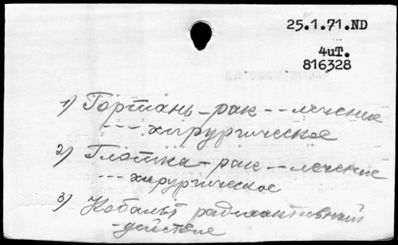 25.1.71.ND
4иТ.
816328
1) Гортань – рак – – лечение
– – – хирургическое
2) Глотка – рак – – лечение
– – – хирургическое
3) Кобальт радиоактивный
– действие